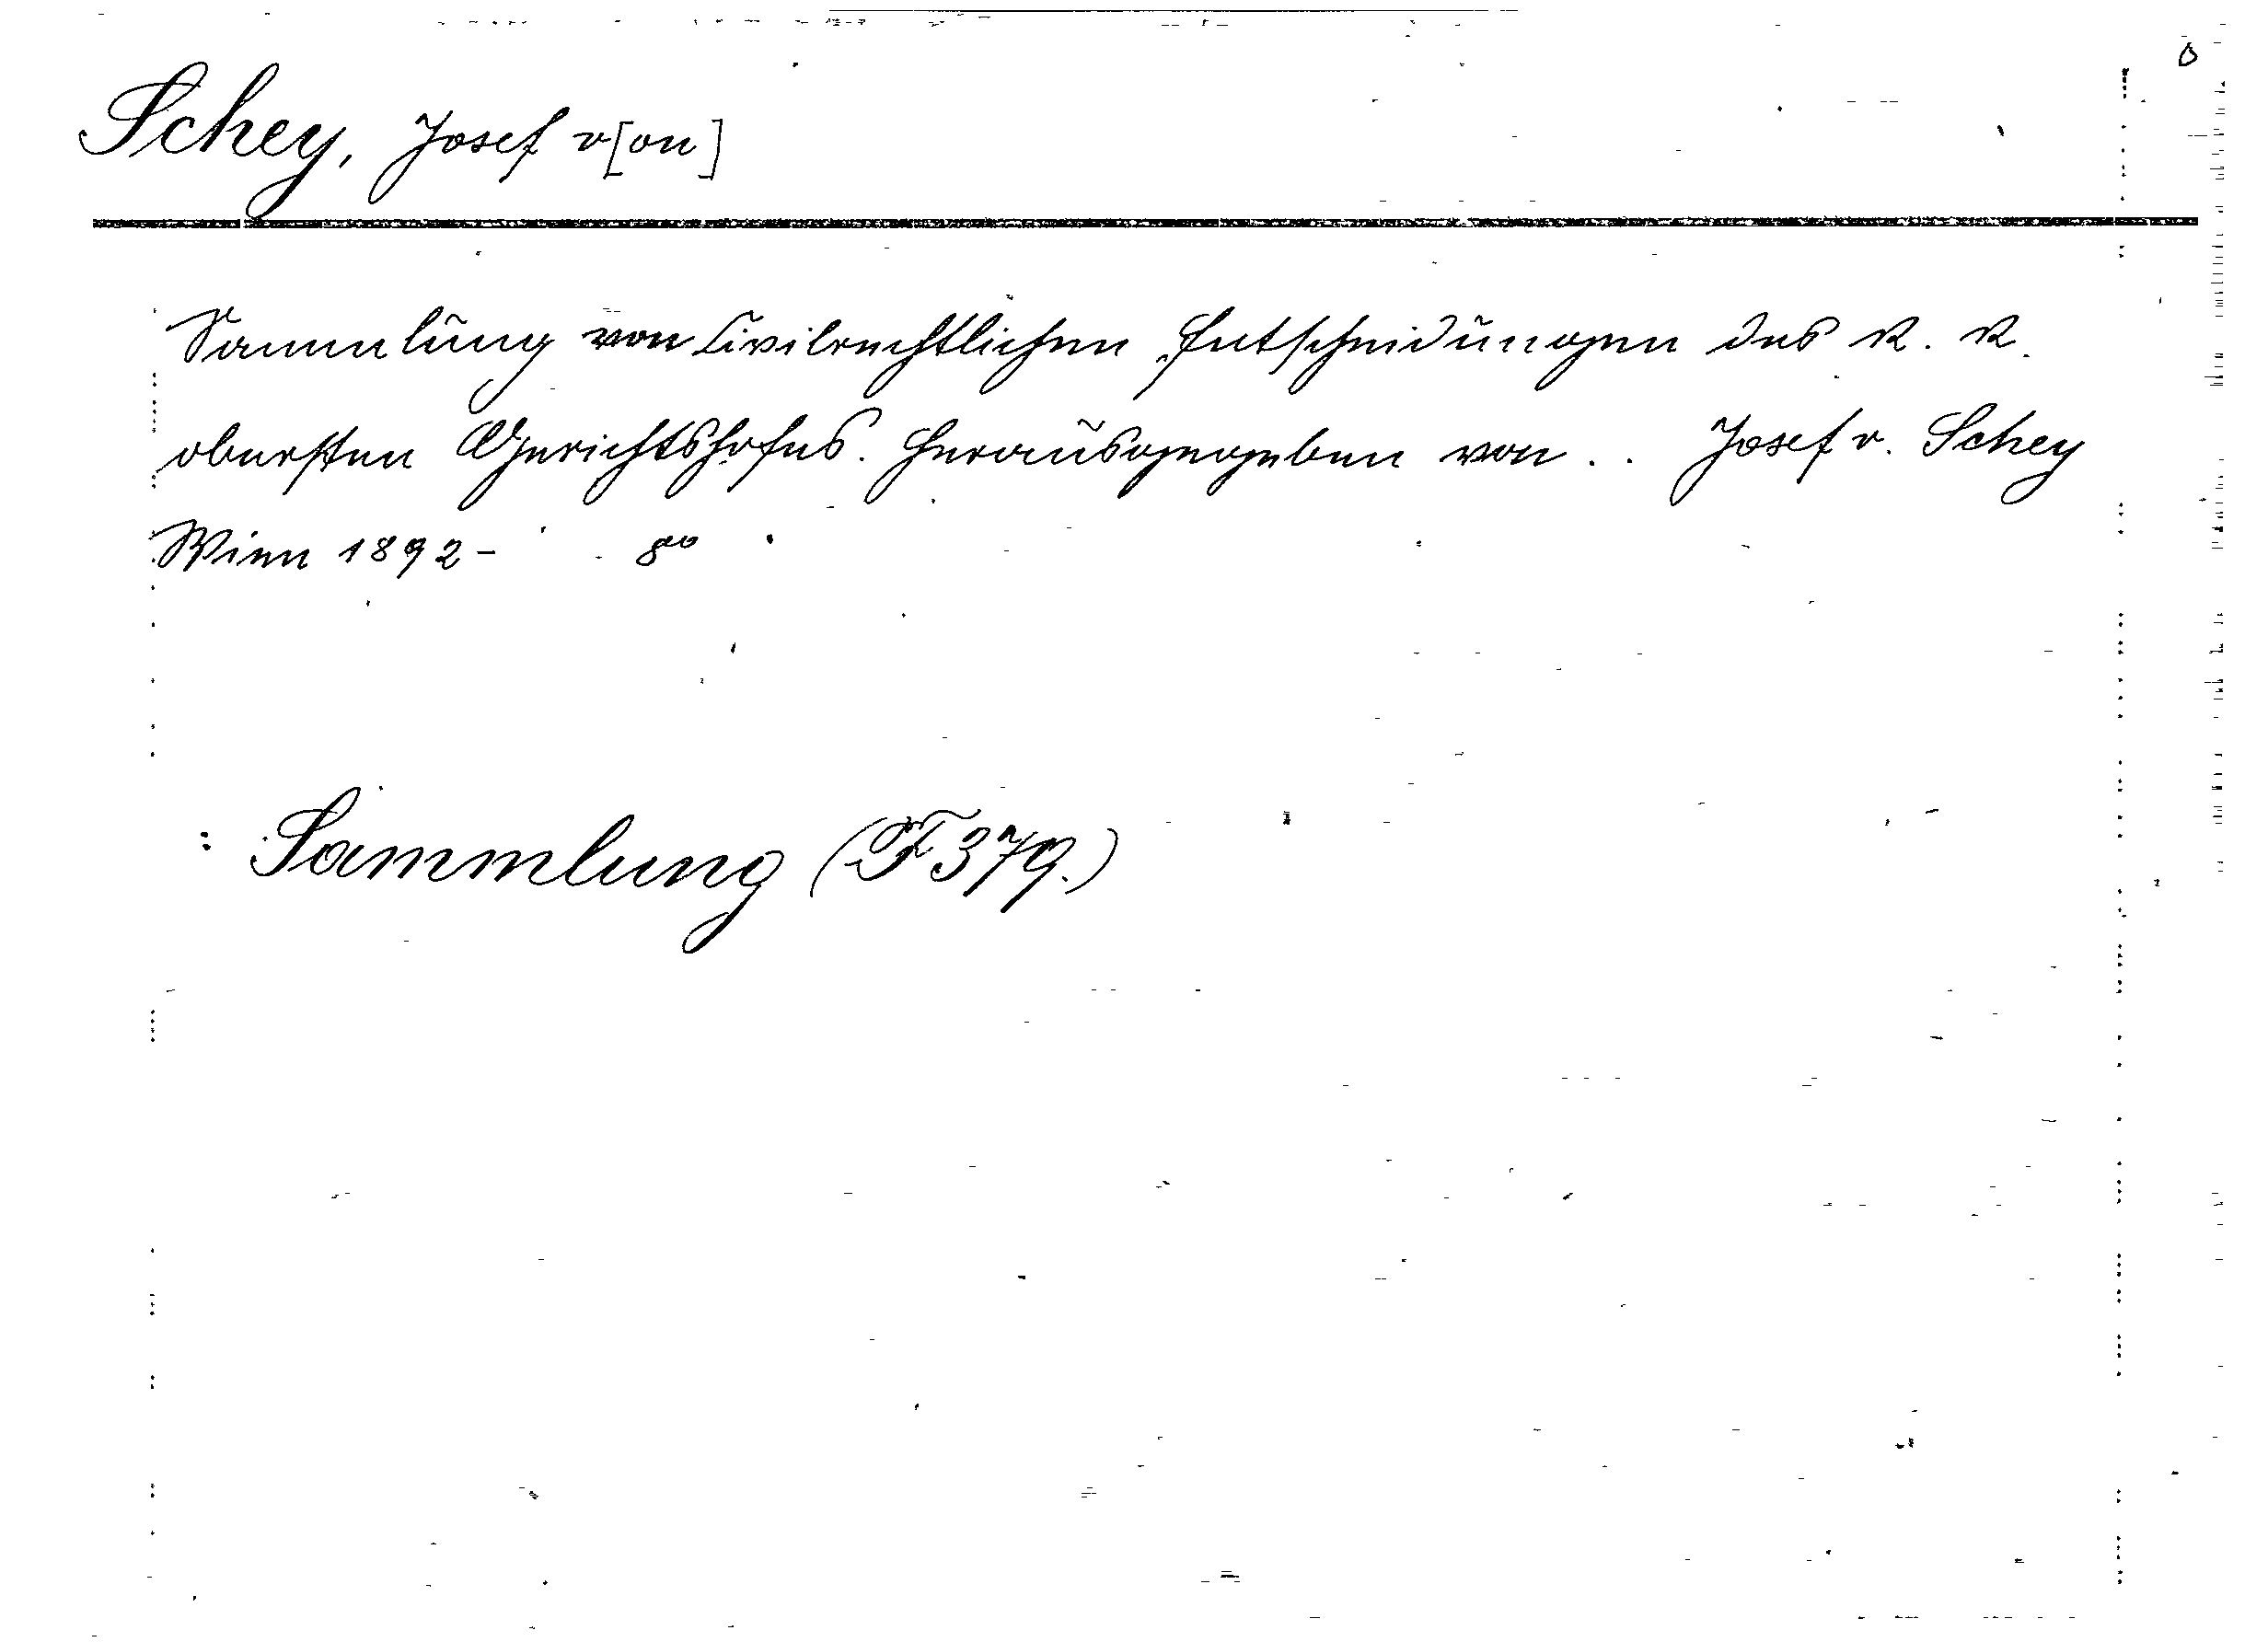 Schey, Josef v[on]
Sammlung von Civilrechtlichen Entscheidungen des k. k.
obersten Gerichtshofes. Herausgegeben von . . Josef v. Schey
Wien 1892 - 8°
: Sammlung (F 379.)